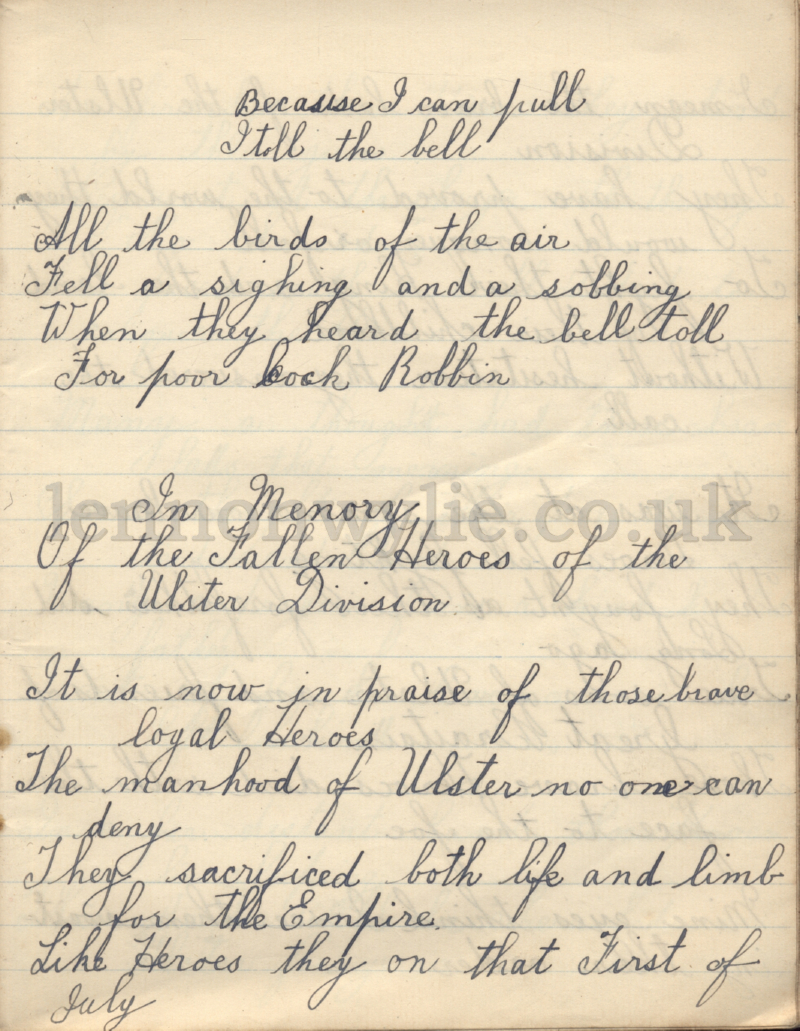 Because I can pull
I toll the bell
All the birds of the air
Fell a sighing and a sobbing
When they heard the bell toll
For poor Cock Robbin
In Menory
Of the Fallen Heroes of the
Ulster Division
It is now in praise of those brave
loyal Heroes
The manhood of Ulster no one can
deny
They sacrificed both life and limb
for the Empire.
Like Heroes they on that First of
July
lennonwylie.co.uk